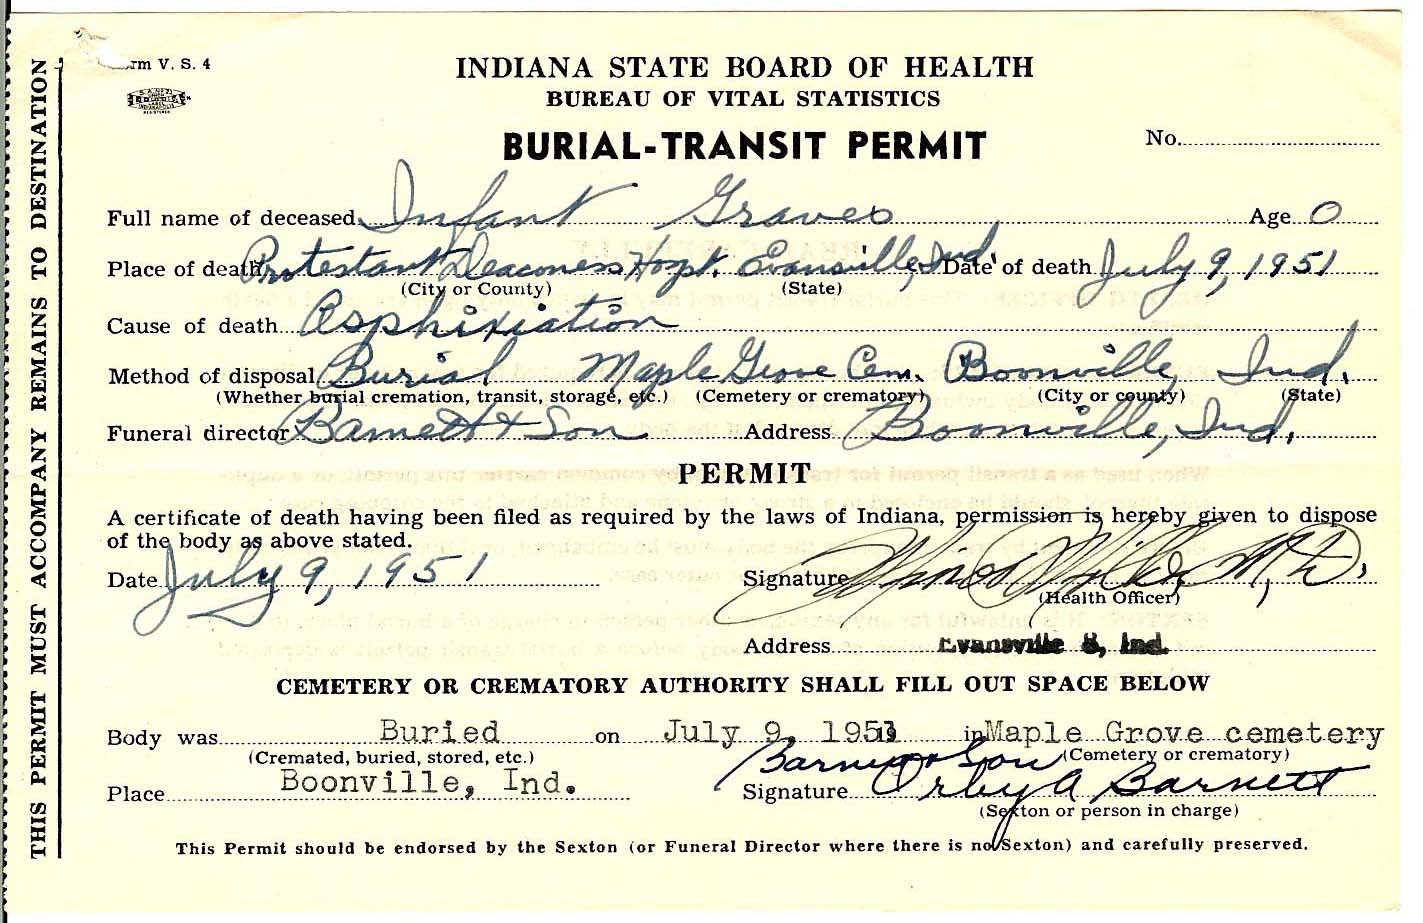 THIS PERMIT MUST ACCOMPANY REMAINS TO DESTINATION
rm V. S. 4
INDIANA STATE BOARD OF HEALTH
BUREAU OF VITAL STATISTICS
BURIAL-TRANSIT PERMIT
No.
Full name of deceased Infant Graves Age 0
Place of death Protestant Deaconess Hospt. Evansville, Ind. Date of death July 9, 1951
(City or County) (State)
Cause of death Asphixiation
Method of disposal Burial Maple Grove Cem. Boonville, Ind.
(Whether burial cremation, transit, storage, etc.) (Cemetery or crematory) (City or county) (State)
Funeral director Barnett & Son Address Boonville, Ind.
PERMIT
A certificate of death having been filed as required by the laws of Indiana, permission is hereby given to dispose
of the body as above stated.
Date July 9, 1951 Signature M.D.
(Health Officer)
Address Evansville 8, Ind.
CEMETERY OR CREMATORY AUTHORITY SHALL FILL OUT SPACE BELOW
Body was Buried on July 9, 1951 in Maple Grove cemetery
(Cremated, buried, stored, etc.) (Cemetery or crematory)
Barnett & Son
Place Boonville, Ind. Signature Orby A Barnett
(Sexton or person in charge)
This Permit should be endorsed by the Sexton (or Funeral Director where there is no Sexton) and carefully preserved.